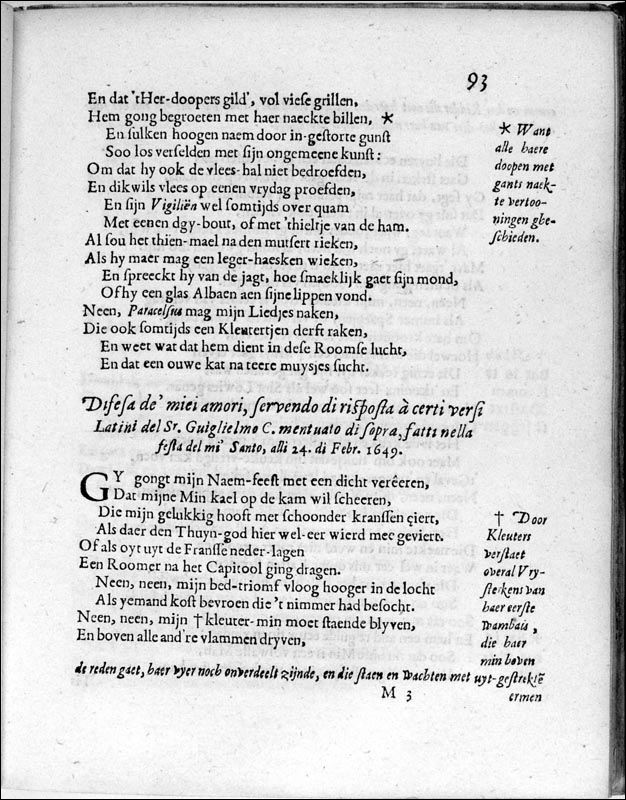 93
En dat 'tHer-doopers gild', vol viese grillen,
Hem gong begroeten met haer naeckte billen, *
En sulken hoogen naem door in-gestorte gunst
Soo los verselden met sijn ongemeene kunst:
Om dat hy ook de vlees-hal niet bedroefden,
En dikwils vlees op eenen vrydag proefden,
En sijn Vigiliën wel somtijds over quam
Met eenen dgy-bout, of met 'thieltje van de ham.
Al sou het thien-mael na den mutsert rieken,
Als hy maer mag een leger-haesken wieken,
En spreeckt hy van de jagt, hoe smaeklijk gaet sijn mond,
Of hy een glas Albaen aen sijne lippen vond.
Neen, Paracelsus mag mijn Liedjes naken,
Die ook somtijds een Kleutertjen derft raken,
En weet wat dat hem dient in dese Roomse lucht,
En dat een ouwe kat na teere muysjes sucht.
* Want
alle haere
doopen met
gants naek-
te vertoo-
ningen ghe-
schieden.
Difesa de' miei amori, servendo di risposta à certi versi
Latini del Sr. Guiglielmo C. mentuato di sopra, fatti nella
festa del mi' Santo, alli 24. di Febr. 1649.
GY gongt mijn Naem-feest met een dicht verêeren,
Dat mijne Min kael op de kam wil scheeren,
Die mijn gelukkig hooft met schoonder kranssen çiert,
Als daer den Thuyn-god hier wel-eer wierd meê geviert.
Of als oyt uyt de Fransse neder-lagen
Een Roomer na het Capitool ging dragen.
Neen, neen, mijn bed-triomf vloog hooger in de locht
Als yemand kost bevroen die 't nimmer had besocht.
Neen, neen, mijn † kleuter-min moet staende blyven,
En boven alle and're vlammen dryven,
† Door
Kleuters
verstaet
overal Vry-
sterkens van
haer eerste
Wambais,
die haer
min boven
de reden gaet, haer vyer noch onverdeelt zijnde, en die staen en wachten met uyt-gestrektē
M 3
ermen